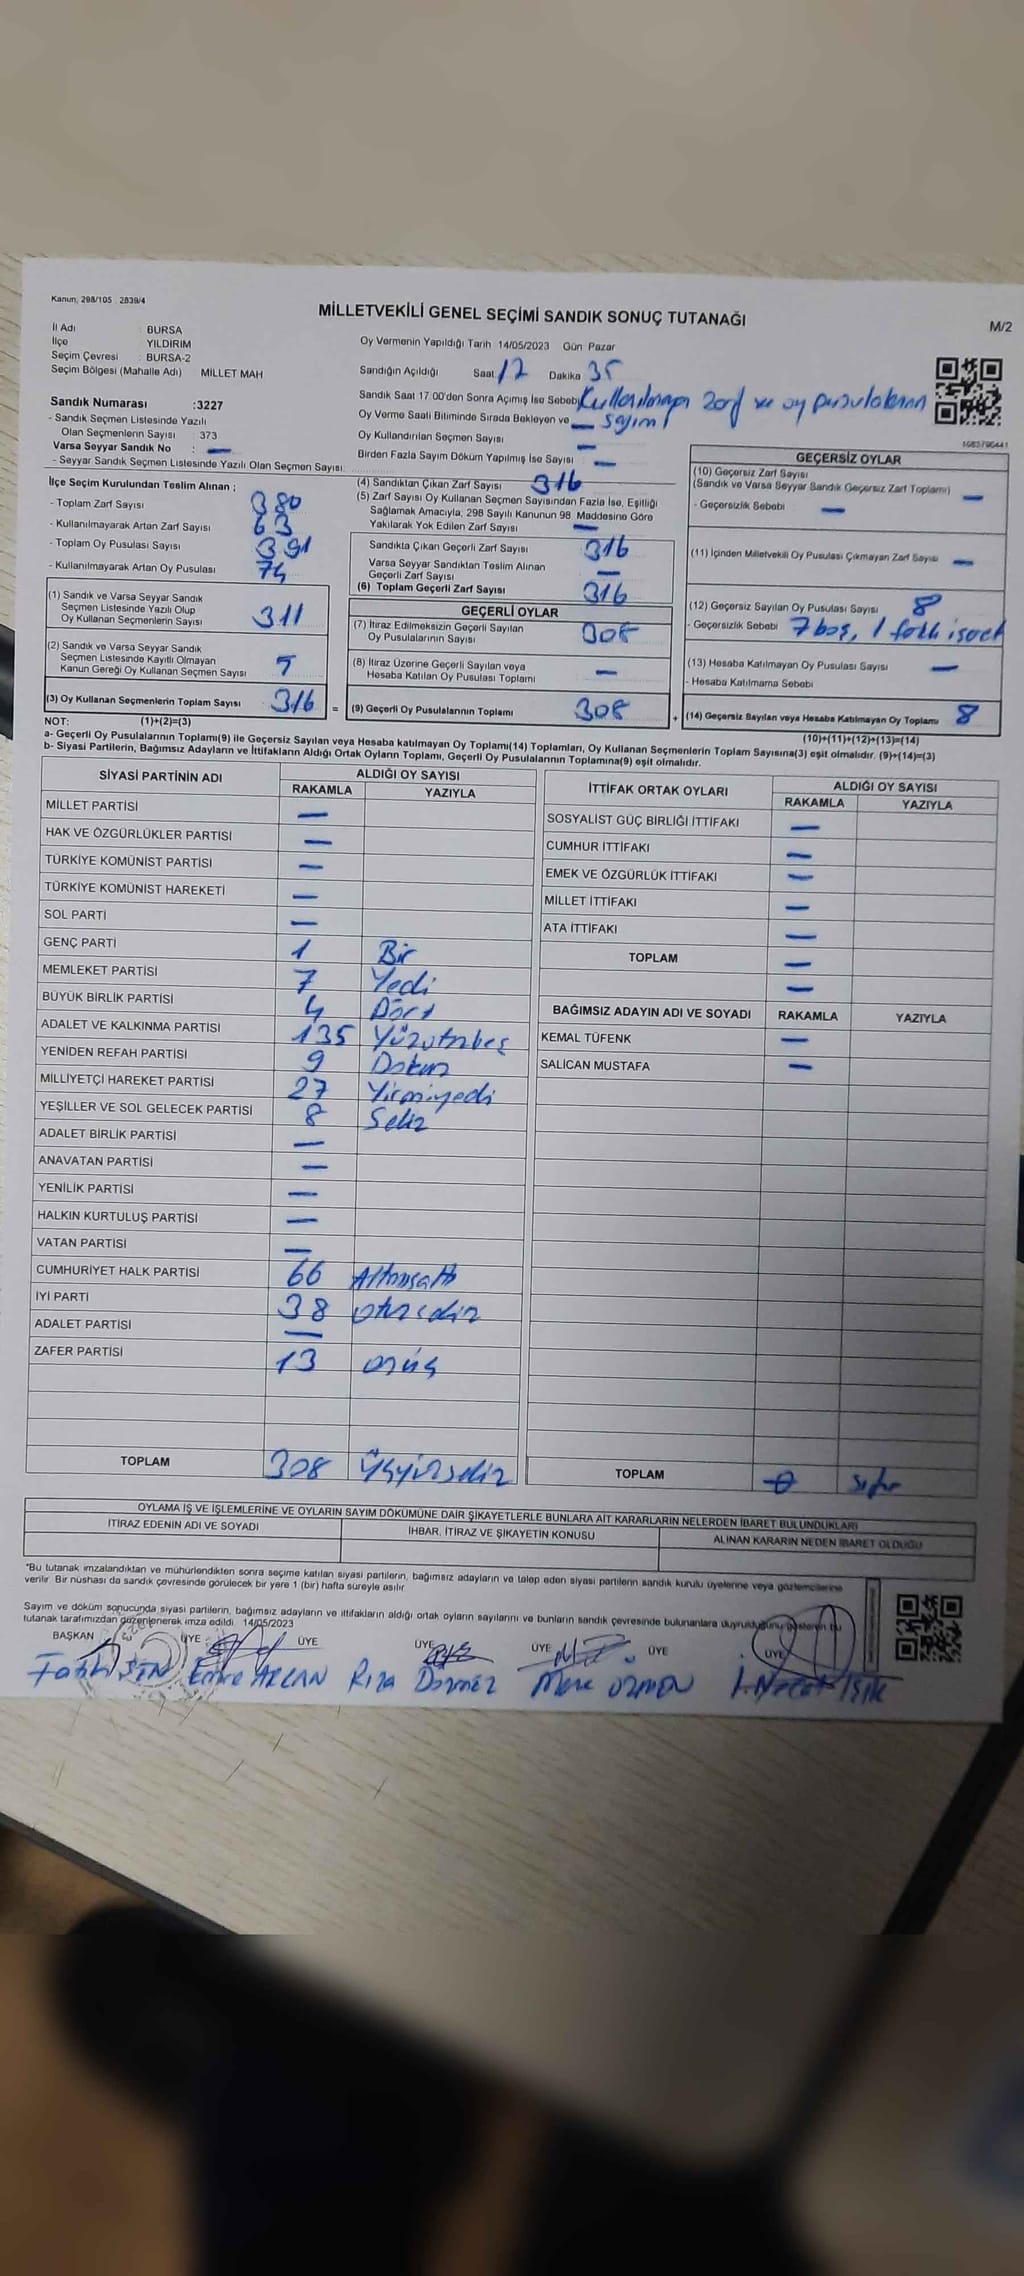 Kanun, 298/105 2839/4
MİLLETVEKİLİ GENEL SEÇİMİ SANDIK SONUÇ TUTANAĞI
M/2
İl Adı : BURSA
İlçe : YILDIRIM
Seçim Çevresi : BURSA-2
Seçim Bölgesi (Mahalle Adı) MİLLET MAH
Oy Vermenin Yapıldığı Tarih 14/05/2023 Gün Pazar
Sandığın Açıldığı Saat 17 Dakika 35
Sandık Saat 17:00'den Sonra Açımış İse Sebebi Kullanılmayan zarf ve oy pusulalarının
Oy Verme Saati Bitiminde Sırada Bekleyen ve — sayımı
Oy Kullandırılan Seçmen Sayısı —
Birden Fazla Sayım Döküm Yapılmış İse Sayısı —
Sandık Numarası :3227
- Sandık Seçmen Listesinde Yazılı
Olan Seçmenlerin Sayısı : 373
Varsa Seyyar Sandık No : —
- Seyyar Sandık Seçmen Listesinde Yazılı Olan Seçmen Sayısı:
İlçe Seçim Kurulundan Teslim Alınan ;
- Toplam Zarf Sayısı 380
- Kullanılmayarak Artan Zarf Sayısı 63
- Toplam Oy Pusulası Sayısı 391
- Kullanılmayarak Artan Oy Pusulası 74
(1) Sandık ve Varsa Seyyar Sandık
Seçmen Listesinde Yazılı Olup
Oy Kullanan Seçmenlerin Sayısı 311
(2) Sandık ve Varsa Seyyar Sandık
Seçmen Listesinde Kayıtlı Olmayan
Kanun Gereği Oy Kullanan Seçmen Sayısı 5
(3) Oy Kullanan Seçmenlerin Toplam Sayısı 316 =
(4) Sandıktan Çıkan Zarf Sayısı 316
(5) Zarf Sayısı Oy Kullanan Seçmen Sayısından Fazla İse, Eşitliği
Sağlamak Amacıyla, 298 Sayılı Kanunun 98. Maddesine Göre
Yakılarak Yok Edilen Zarf Sayısı —
Sandıkta Çıkan Geçerli Zarf Sayısı 316
Varsa Seyyar Sandıktan Teslim Alınan
Geçerli Zarf Sayısı —
(6) Toplam Geçerli Zarf Sayısı 316
GEÇERLİ OYLAR
(7) İtiraz Edilmeksizin Geçerli Sayılan
Oy Pusulalarının Sayısı 308
(8) İtiraz Üzerine Geçerli Sayılan veya
Hesaba Katılan Oy Pusulası Toplamı —
(9) Geçerli Oy Pusulalarının Toplamı 308 +
1083790441
GEÇERSİZ OYLAR
(10) Geçersiz Zarf Sayısı
(Sandık ve Varsa Seyyar Sandık Geçersiz Zarf Toplamı) —
- Geçersizlik Sebebi —
(11) İçinden Milletvekili Oy Pusulası Çıkmayan Zarf Sayısı —
(12) Geçersiz Sayılan Oy Pusulası Sayısı 8
- Geçersizlik Sebebi 7 boş, 1 farklı işaret
(13) Hesaba Katılmayan Oy Pusulası Sayısı —
- Hesaba Katılmama Sebebi
(14) Geçersiz Sayılan veya Hesaba Katılmayan Oy Toplamı 8
NOT: (1)+(2)=(3)
(10)+(11)+(12)+(13)=(14)
a- Geçerli Oy Pusulalarının Toplamı(9) ile Geçersiz Sayılan veya Hesaba katılmayan Oy Toplamı(14) Toplamları, Oy Kullanan Seçmenlerin Toplam Sayısına(3) eşit olmalıdır. (9)+(14)=(3)
b- Siyasi Partilerin, Bağımsız Adayların ve İttifakların Aldığı Ortak Oyların Toplamı, Geçerli Oy Pusulalarının Toplamına(9) eşit olmalıdır.
SİYASİ PARTİNİN ADI ALDIĞI OY SAYISI
RAKAMLA YAZIYLA
MİLLET PARTİSİ —
HAK VE ÖZGÜRLÜKLER PARTİSİ —
TÜRKİYE KOMÜNİST PARTİSİ —
TÜRKİYE KOMÜNİST HAREKETİ —
SOL PARTİ —
GENÇ PARTİ 1 Bir
MEMLEKET PARTİSİ 7 Yedi
BÜYÜK BİRLİK PARTİSİ 4 Dört
ADALET VE KALKINMA PARTİSİ 135 Yüzotuzbeş
YENİDEN REFAH PARTİSİ 9 Dokuz
MİLLİYETÇİ HAREKET PARTİSİ 27 Yirmiyedi
YEŞİLLER VE SOL GELECEK PARTİSİ 8 Sekiz
ADALET BİRLİK PARTİSİ —
ANAVATAN PARTİSİ —
YENİLİK PARTİSİ —
HALKIN KURTULUŞ PARTİSİ —
VATAN PARTİSİ —
CUMHURİYET HALK PARTİSİ 66 Altmışaltı
İYİ PARTİ 38 otuzsekiz
ADALET PARTİSİ —
ZAFER PARTİSİ 13 onüç
TOPLAM 308 Üçyüzsekiz
İTTİFAK ORTAK OYLARI ALDIĞI OY SAYISI
RAKAMLA YAZIYLA
SOSYALİST GÜÇ BİRLİĞİ İTTİFAKI —
CUMHUR İTTİFAKI —
EMEK VE ÖZGÜRLÜK İTTİFAKI —
MİLLET İTTİFAKI —
ATA İTTİFAKI —
TOPLAM —
—
BAĞIMSIZ ADAYIN ADI VE SOYADI RAKAMLA YAZIYLA
KEMAL TÜFENK —
SALİCAN MUSTAFA —
TOPLAM 0 sıfır
OYLAMA İŞ VE İŞLEMLERİNE VE OYLARIN SAYIM DÖKÜMÜNE DAİR ŞİKAYETLERLE BUNLARA AİT KARARLARIN NELERDEN İBARET BULUNDUKLARI
İTİRAZ EDENİN ADI VE SOYADI İHBAR, İTİRAZ VE ŞİKAYETİN KONUSU ALINAN KARARIN NEDEN İBARET OLDUĞU
*Bu tutanak imzalandıktan ve mühürlendikten sonra seçime katılan siyasi partilerin, bağımsız adayların ve talep eden siyasi partilerin sandık kurulu üyelerine veya gözlemcilerine
verilir. Bir nüshası da sandık çevresinde görülecek bir yere 1 (bir) hafta süreyle asılır.
Sayım ve döküm sonucunda siyasi partilerin, bağımsız adayların ve ittifakların aldığı ortak oyların sayılarını ve bunların sandık çevresinde bulunanlara duyrulduğunu gösteren bu
tutanak tarafımızdan düzenlenerek imza edildi. 14/05/2023
BAŞKAN ÜYE ÜYE ÜYE ÜYE ÜYE ÜYE
Fatih Emre Rıza Dönmez ÖZMEN IŞIK